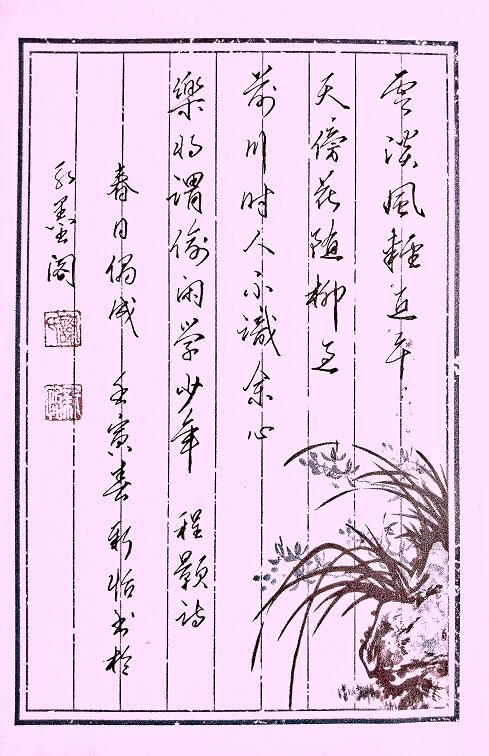 雲淡風輕近午
天傍花隨柳過
前川时人不識余心
樂将謂偷闲学少年 程顥詩
春日偶成 壬寅春书於
墨阁